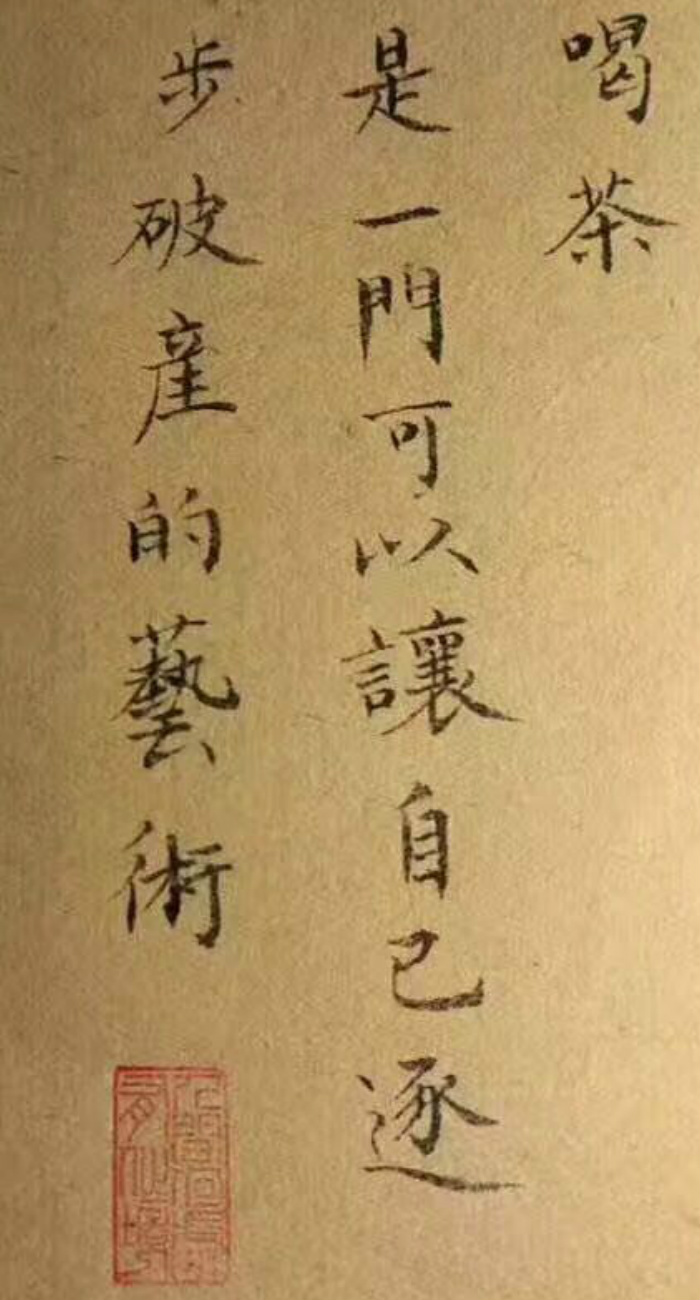 喝茶
是一門可以讓自己逐
步破産的藝術